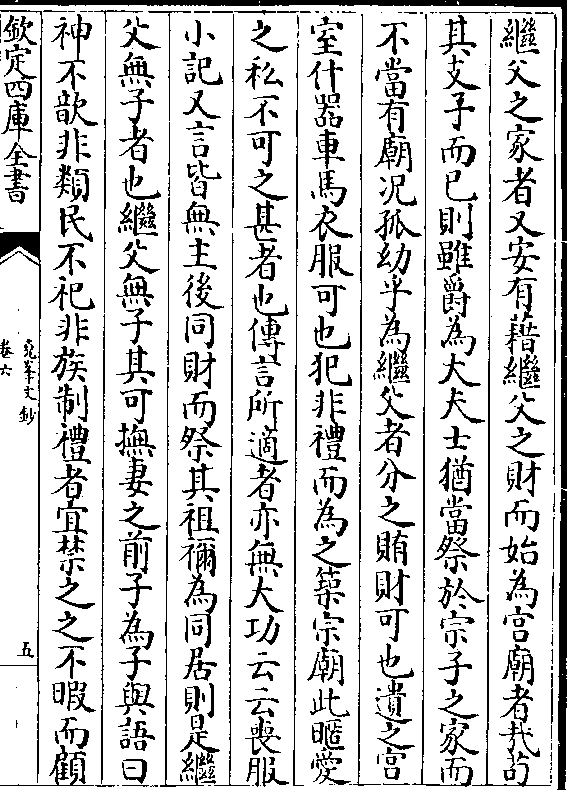 繼父之家者又安有藉繼父之財而始為宫廟者哉茍
其支子而已則雖爵為大夫士猶當祭於宗子之家而
不當有廟况孤幼乎為繼父者分之賄財可也遺之宫
室什器車馬衣服可也犯非禮而為之築宗廟此暱愛
之私不可之甚者也傳言所適者亦無大功云云喪服
小記又言皆無主後同財而祭其祖禰為同居則是繼
父無子者也繼父無子其可撫妻之前子為子與語曰
神不歆非類民不祀非族制禮者宜禁之之不暇而顧
欽定四庫全書
堯峯文鈔
卷六
五